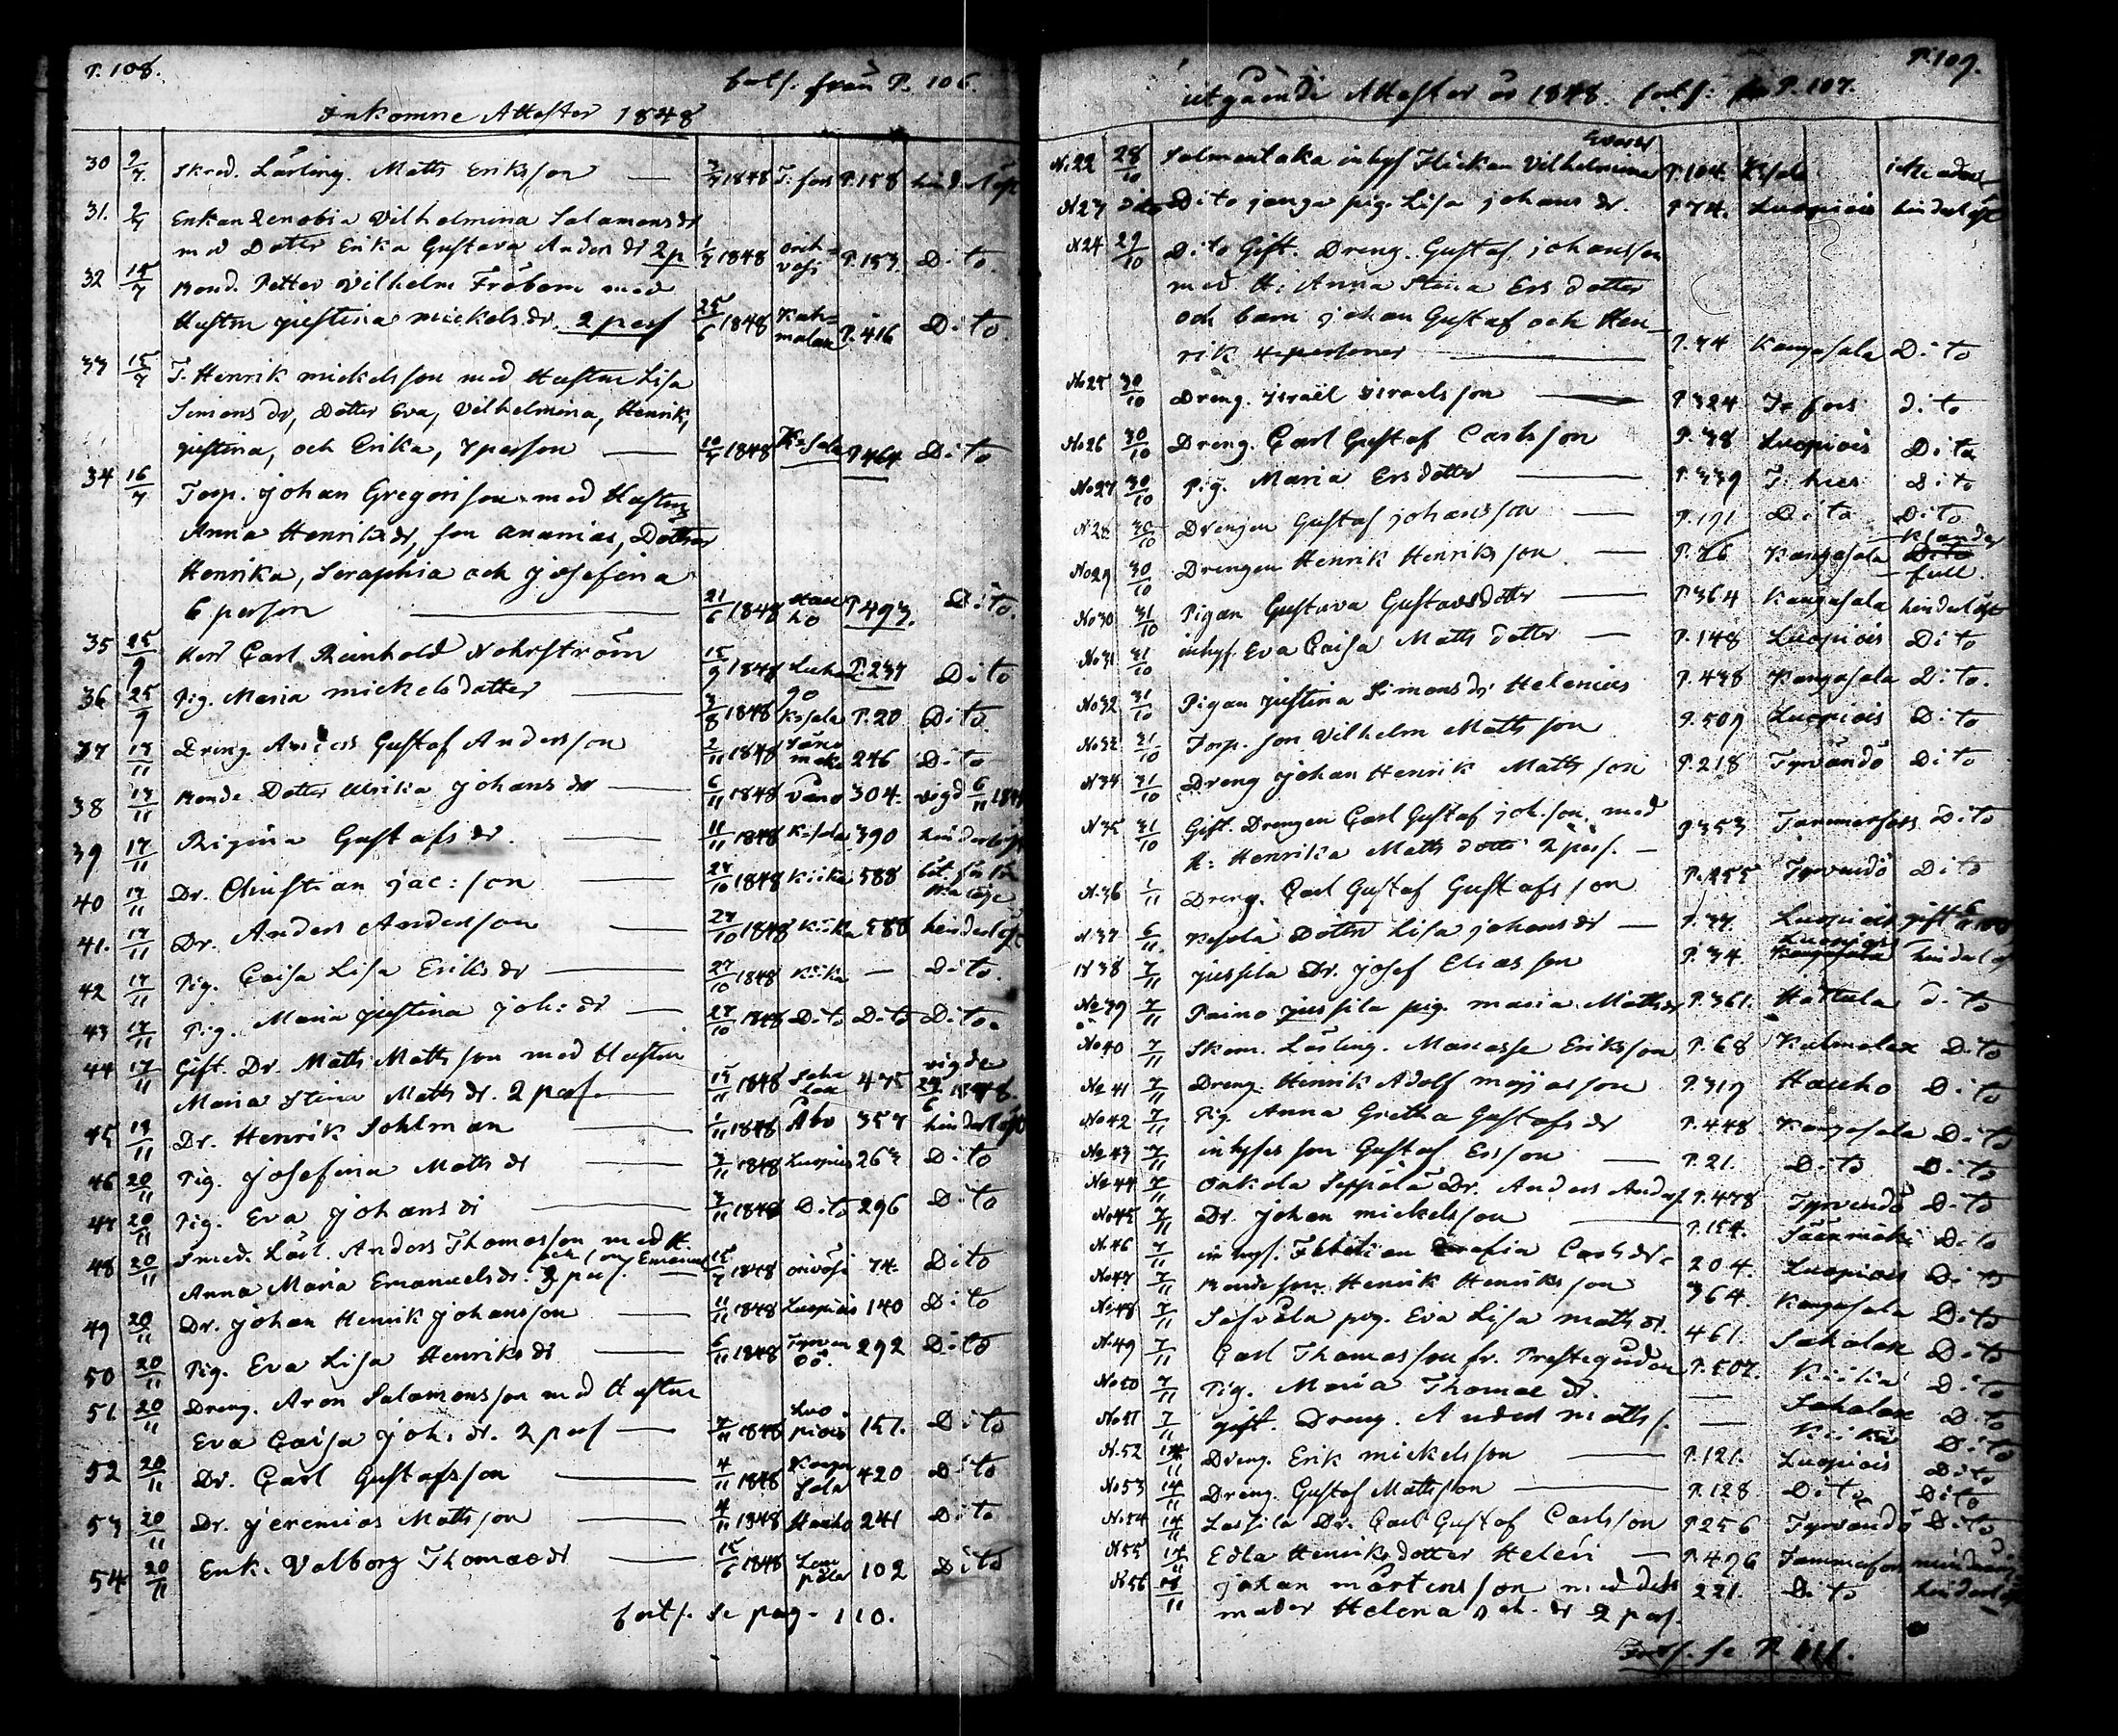 P. 108.
forts. från P. 106.
Inkomne Attester 1848
30 9/7. Skred. Lärling. Matts Eriksson — 3/7 1848 T:fors P.158 hinderlös
31. 9/7 Enkan Zenobia Vilhelmina Salamonsdr
med Dotter Erika Gustava Anders dr 2 p 1/7 1848 orih=vesi P.153. Dito.
32 15/7 Bond. Petter Vilhelm Fröbom med
Hustru justina mickels dr. 2 pers 25/6 1848 Kuh=malax P. 416 Dito.
33 15/7 T. Henrik mickelsson med Hustru Lisa
Simons dr, Dotter Eva, Vilhelmina, Henrik,
justina, och Erika, 7 person — 10/7 1848 K:sala P 464 Dito
34 16/7 Torp. johan Gregorisson med Hustru
Anna Henriksdr, son ananias, Döttrar
Henrika, Seraphia och josefina
6 person — 21/6 1848 Hauho P. 493. Dito.
35 25/9 Herr Carl Reinhold Nohrström 15/9 1848 P. 237 Dito
36 25/9 Pig. Maria mickelsdotter — 3/8 1848 K:sala P. 20 Dito
37 17/11 Dreng. Anders Gustaf Andersson 2/11 1848 Säxmäki 246 Dito
38 17/11 Bonde Dotter Ulrika johans dr — 6/11 1848 Vånå 304. vigd 6/11 1848
39 17/11 Regina Gustafs dr. — 11/11 1848 K:sala 390 hinderlös
40 17/11 Dr. Christian jac:son — 27/10 1848 Kiika 588
41. 17/11 Dr. Anders Andersson — 27/10 1848 Kiika 588 hinderlös
42 17/11 Pig. Caisa Lisa Eriks dr — 27/10 1848 Kiika — Dito.
43 17/11 Pig. Maria justina joh: dr — 27/10 1848 Dito Dito Dito.
44 17/11 Gift. Dr. Matts Mattsson med Hustru
Maria Stina Matts dr. 2 pers. — 15/11 1848 Sahalax 475 vigde 24/6 1848.
45 17/11 Dr. Henrik Sohlman — 1/11 1848 Åbo 357 hinderlös
46 20/11 Pig. josefina Matts dr — 3/11 1848 Luopiois 263 Dito
47 20/11 Pig. Eva johans dr — 3/11 1848 Dito 296 Dito
48 20/11 Smed. Lärl. Anders Thomasson med H.
och son Emanuel
Anna Maria Emanuelsdr. 3 pers. — 15/7 1848 orivesi 74. Dito
49 20/11 Dr. johan Henrik johansson — 11/11 1848 Luopiois 140 Dito
50 20/11 Pig. Eva Lisa Henriks dr — 6/11 1848 Tyrvendö. 292 Dito
51 20/11 Dreng. Aron Salamonsson med Hustru
Eva Caisa joh: dr. 2 pers — 7/11 1848 Luopiois 157. Dito
52 20/11 Dr. Carl Gustafsson — 4/11 1848 Kangasala 420 Dito
53 20/11 Dr. jeremias Mattsson — 4/11 1848 Hauho 241 Dito
54 20/11 Enk. Valborg Thomasdr — 15/6 1848 Lempäla 102 Dito
forts. se pag. 110.
P. 109.
utgående Attester år 1848. forts: fr P. 107.
Evas dr
No 22 28/10 Salmentaka inhys Flickan Vilhelmina P. 104. K:sala
N 23 dito Dito jonga pig. Lisa johans dr. P 74. Luopiois hinderlös
N 24 29/10 Dito Gift. Dreng. Gustaf johansson
med H: Anna Stina Ers dotter
och barn johan Gustaf och Hen-
rik 4 personer — P. 74 Kangasala Dito
No 25 30/10 Dreng. Israël Israelsson — P 324 T:fors Dito
No 26 30/10 Dreng. Carl Gustaf Carlsson P. 38 Luopiois Dito
No 27 30/10 Pig. Maria Ersdotter — P. 339 Dito
N 28 30/10 Drengen Gustaf johansson — P. 191 Dito Dito
No 29 30/10 Drengen Henrik Henriksson — P. 76 Kangasala
No 30 31/10 Pigan Gustava Gustavsdotter — P 364 Kangasala hinderlöst
No 31 31/10 inhys. Eva Caisa Matts dotter — P. 148 Luopiois Dito
No 32 31/10 Pigan justina Simonsdr Helenius P. 438 Kangasala Dito.
No 33 31/10 Torp. son Vilhelm Mattsson P. 509 Luopiois Dito
N 34 31/10 Dreng johan Henrik Mattsson P. 218 Tyrvändö Dito
N 35 31/10 Gift. Drengen Carl Gustaf joh.son. med
H: Henrika Matts dotter 2 pers. — P 353 Tammerfors Dito
N. 36 1/11 Dreng. Carl Gustaf Gustafsson P. 255 Tyrvendö Dito
N. 37 6/11. Dotter Lisa johans dr — P. 37. Luopiois gift 6/11
N 38 7/11 jussila Dr. josef Eliasson P. 34 Luopiois hinderlös
No 39 7/11 Paino jussila pig. maria Mattsdr P. 361. Hattula Dito
No 40 7/11 Skom. Lärling. Manasse Eriksson P. 68 Kulmalax Dito
No 41 7/11 Dreng. Henrik Adolf P. 319 Hauho Dito
No 42 7/11 Pig. Anna Gretha Gustafs dr P. 448 Kangasala Dito
No 43 7/11 inhyses son Gustaf Ersson — P. 21. Dito Dito
No 44 7/11 Onkola Seppälä Dr. Anders Anders. P. 478 Tyrvendö Dito
No 45 7/11 Dr. johan mickelsson — P. 154. Säxmäki Dito
N. 46 7/11 inhys. Flickan Carlsdr - 204. Luopiois Dito
No 47 7/11 Bondeson. Henrik Henriksson 364. Kangasala Dito
No 48 7/11 pig. Eva Lisa matts dr. 461. Sahalax Dito
N. 49 7/11 Carl Thomasson fr. Prestegården P. 507. Kiika Dito
No 50 7/11 Pig. Maria Thomae dr. — Sahalax Dito
No 51 7/11 gift. Dreng. Anders matts s. — Kiika Dito
N. 52 14/11 Dreng. Erik mickelsson — P. 121. Luopiois Dito
No 53 14/11 Dreng. Gustaf Mattsson — P. 128 Dito Dito
N. 54 14/11 Lassila Dr. Carl Gustaf Carlsson P 256 Tyrvendö Dito
N 55 14/11 Edla Henriksdotter Helén — P. 496 Tammerfors
N 56 18/11 johan mårtensson med dess
moder Helena joh. dr 2 pers. 221. Dito hinderlös
Forts. se P. 111.